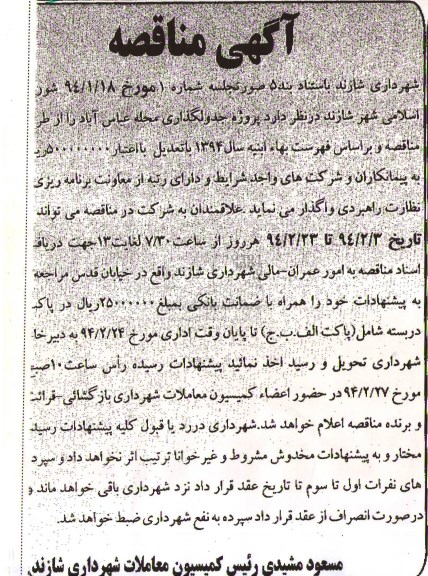 آگهی مناقصه
شهرداری شازند باستناد بند۵ صورتجلسه شماره ۱مورخ ۹۴/۱/۱۸ شور
اسلامی شهر شازند درنظر دارد پروژه جدولگذاری محله عباس آباد را از طر
مناقصه و براساس فهرست بهاء ابنیه سال۱۳۹۴ باتعدیل بااعتبار
به پیمانکاران و شرکت های واجد شرایط و دارای رتبه از معاونت برنامه ریزی
نظارت راهبردی واگذار می نماید .علاقمندان به شرکت در مناقصه می تواند
تاریخ ۹۴/۲/۳ تا ۹۴/۲/۲۳ هرروز از ساعت۷/۳۰ لغایت۱۳جهت دریاف
اسناد مناقصه به امور عمران-مالی شهرداری شازند واقع در خیابان قدس مراجعه
به پیشنهادات خود را همراه با ضمانت بانکی بمبلغ۲۵۰۰۰۰۰۰ریال در پاک
دربسته شامل(پاکت الف.ب.ج) تا پایان وقت اداری مورخ ۹۴/۲/۲۴ به دبیرخا
شهرداری تحویل و رسید اخذ نمائید پیشنهادات رسیده رأس ساعت۱۰صبح
مورخ ۹۴/۲/۲۷ در حضور اعضاء کمیسیون معاملات شهرداری بازگشائی-قرائت
و برنده مناقصه اعلام خواهد شد.شهرداری دررد یا قبول کلیه پیشنهادات رسید
مختار و به پیشنهادات مخدوش مشروط و غیر خوانا ترتیب اثر نخواهد داد و سپرد
های نفرات اول تا سوم تا تاریخ عقد قرار داد نزد شهرداری باقی خواهد ماند و
درصورت انصراف از عقد قرار داد سپرده به نفع شهرداری ضبط خواهد شد.
مسعود مشیدی رئیس کمیسیون معاملات شهرداری شازند